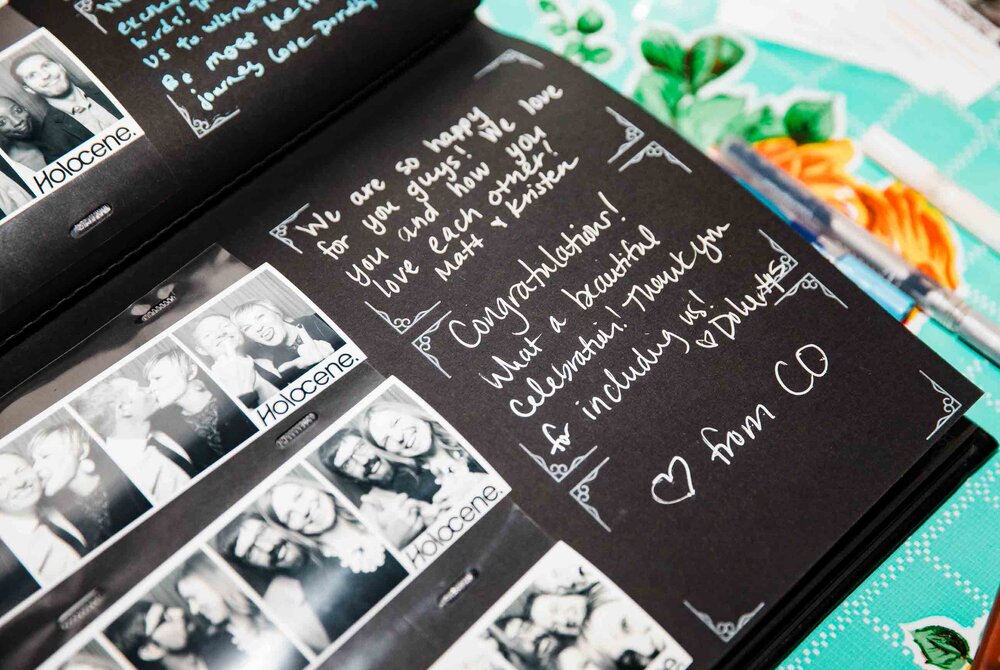 birds! 
us to
Be most blessed
journey Love Dordy
Holocene.
We are so happy
for you guys! We love
you and how you
love each other!
Matt & Kristen
Congratulations!
What a beautiful
celebration! Thank you
for including us!
♡ Dolus
♡ from CO
Holocene.
Holocene.